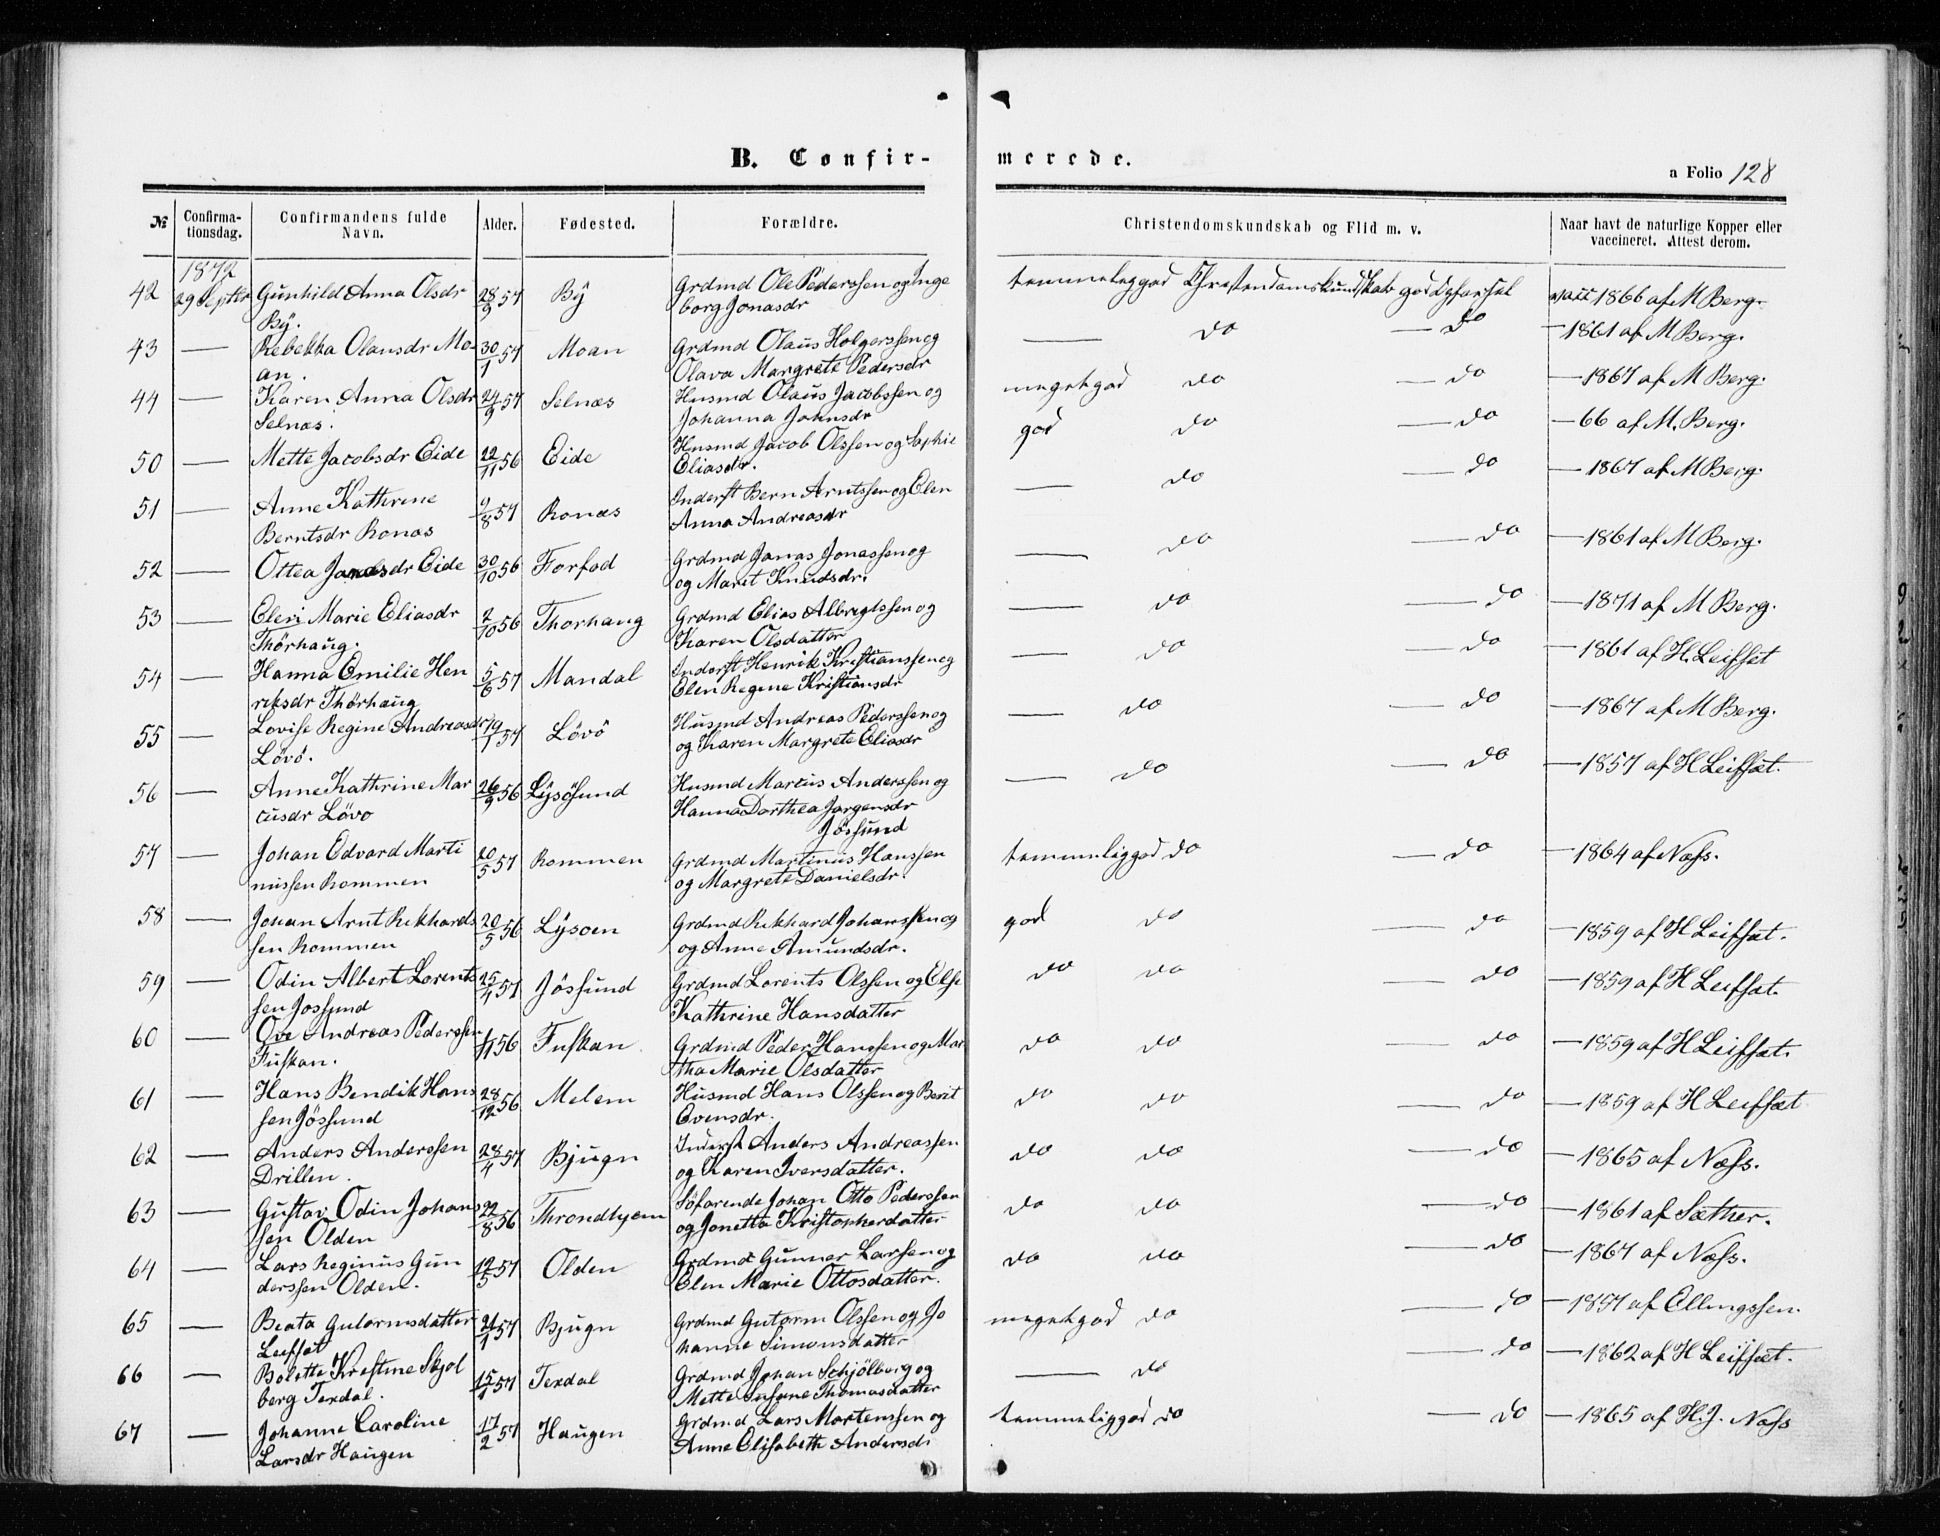 B. Confir-
merede.
a Folio 128
№
Confirma-
tionsdag.
Confirmandens fulde
Navn.
Alder.
Fødested.
Forældre.
Christendomskundskab og Flid m. v.
Naar havt de naturlige Kopper eller
vaccineret. Attest derom.
1872
42 29 Septbr Gunhild Anna Olsdr 28/9 57 By Grdmd Ole Pederssen og Inge temmeleggod Christendomskundskab god Opførsel vacc 1866 af M Berg.
By. borg Jonasdr
43 — Rebekka Olausdr Mo 30/1 57 Moan Grdmd Olaus Holgerssen og — do — do — 1861 af M Berg.
an. Olava Margrete Pedersdr
44 — Karen Anna Olsdr 24/9 57 Selnæs Husmd Olaus Jacobssen og megetgod do — do — 1867 af M Berg.
Selnæs. Johanna Johnsdr
50 — Mette Jacobsdr Eide 22/11 56 Eide Husmd Jacob Olssen og Sophie god do — do — 66 af M. Berg.
Eliasdr.
51 — Anne Kathrine 9/8 57 Ronæs Inderst Bern Arntssen og Elen — do — do — 1867 af M Berg.
Berntsdr Ronæs Anna Andreasdr
52 — Ottea Jonasdr Eide 30/10 56 Forfod Grdmd Jonas Jonassen og — do — do — 1861 af M Berg.
og Maret Knudsdr.
53 — Elen Marie Eliasdr 2/10 56 Thorhaug Grdmd Elias Albregtssen og — do — do — 1871 af M Berg.
Thørhaug. Karen Olsdatter
54 — Hanna Emilie Hen 5/6 57 Mandal Inderst Henrik Kristianssen og — do — do — 1861 af H. Leifset
riksdr Thørhaug Elen Regine Kristiansdr
55 — Lovise Regine Andreasdr 19/1 57 Lövö Husmd Andreas Pederssen og — do — do — 1867 af M Berg.
Lövö. og Karen Margrete Eliasdr
56 — Anne Kathrine Mar 26/9 56 Lysøsund Husmd Marcus Anderssen og — do — do — 1857 af H Leifsæt.
cusdr Lövo Hanna Dorthea Jørgensdr
Jøssund
57 — Johan Edvard Marti 20/5 57 Rommen Grdmd Martinus Hanssen temmeliggod do — do — 1864 af Næss.
nussen Rommen og Margrete Danielsdr.
58 — Johan Arnt Rikhards 20/5 56 Lysoen Grdmd Rikhard Johanssen og god do — do — 1859 af H Leifsæt.
sen Rommen og Anne Amundsdr.
59 — Odin Albert Lorents 25/4 57 Jössund Grdmd Lorents Olssen og Else do do — do — 1859 af H Leifsæt.
sen Jossund Kathrine Hansdatter
60 — Ove Andreas Pederssen 1/11 56 Fuskan Grdmd Peder Hanssen og Mar do do — do — 1859 af H Leifsæt.
Fuskan. tha Marie Olsdatter
61 — Hans Bendik Hans 28/12 56 Melem Husmd Hans Olssen og Berit do do — do — 1859 af H Leifsæt
sen Jössund Evensdr.
62 — Anders Anderssen 28/4 57 Bjugn Inderst Anders Andreassen do do — do — 1865 af Næss.
Drillen. og Karen Iversdatter.
63 — Gustav Odin Johans 22/8 56 Throndhjem Søfarende Johan Otto Pederssen do do — do — 1861 af Sæther.
sen Olden og Jonetta Kristopherdatter
64 — Lars Reginus Gun 12/5 57 Olden Grdmd Gunner Larssen og do do — do — 1867 af Næss.
derssen Olden. Elen Marie Ottosdatter.
65 — Beata Gutormsdatter 21/1 57 Bjugn Grdmd Gutorm Olssen og Jo megetgod do — do — 1857 af Ellingssen.
Leifsæt hanne Simonsdatter
66 — Bolette Kristine Skjol 15/1 57 Texdal Grdmd Johan Schjölberg og — do — do — 1862 af H Leifsæt.
berg Texdal. Mette Susane Thomasdatter
67 — Johanne Caroline 17/2 57 Haugen Grdmd Lars Mortenssen og temmeliggod do — do — 1865 af H. J. Næss
Larsdr Haugen Anne Elisabeth Andersdr